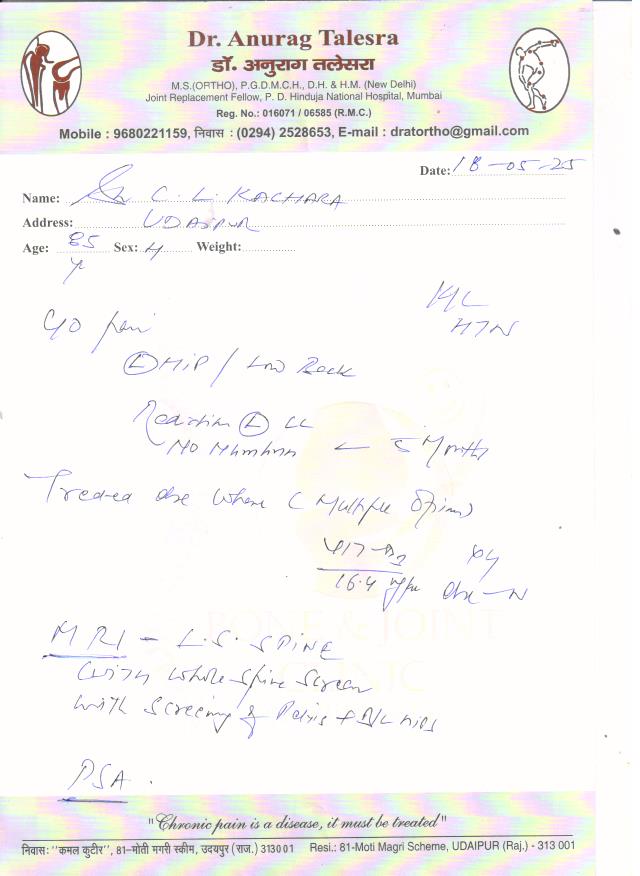 Dr. Anurag Talesra
डॉ. अनुराग तलेसरा
M.S.(ORTHO), P.G.D.M.C.H., D.H. & H.M. (New Delhi)
Joint Replacement Fellow, P. D. Hinduja National Hospital, Mumbai
Reg. No.: 016071 / 06585 (R.M.C.)
Mobile : 9680221159, निवास : (0294) 2528653, E-mail : dratortho@gmail.com
Date: 18-05-25
Name: Sh C. L. KACHARA
Address: UDAIPUR
Age: 85 Sex: M Weight:
yr
HTN
C/O pain
(L) HIP / Low Back
Radiation (L) LL
No Numbness ← 5 Months
Treated else where C Multiple
16.4
MRI - L.S. SPINE
With whole spine screen
With Screening of Pelvis + B/L HIPS
PSA.
BONE & JOINT
CLINIC
"Chronic pain is a disease, it must be treated"
निवास: "कमल कुटीर", 81-मोती मगरी स्कीम, उदयपुर (राज.) 313001 Resi.: 81-Moti Magri Scheme, UDAIPUR (Raj.) - 313 001